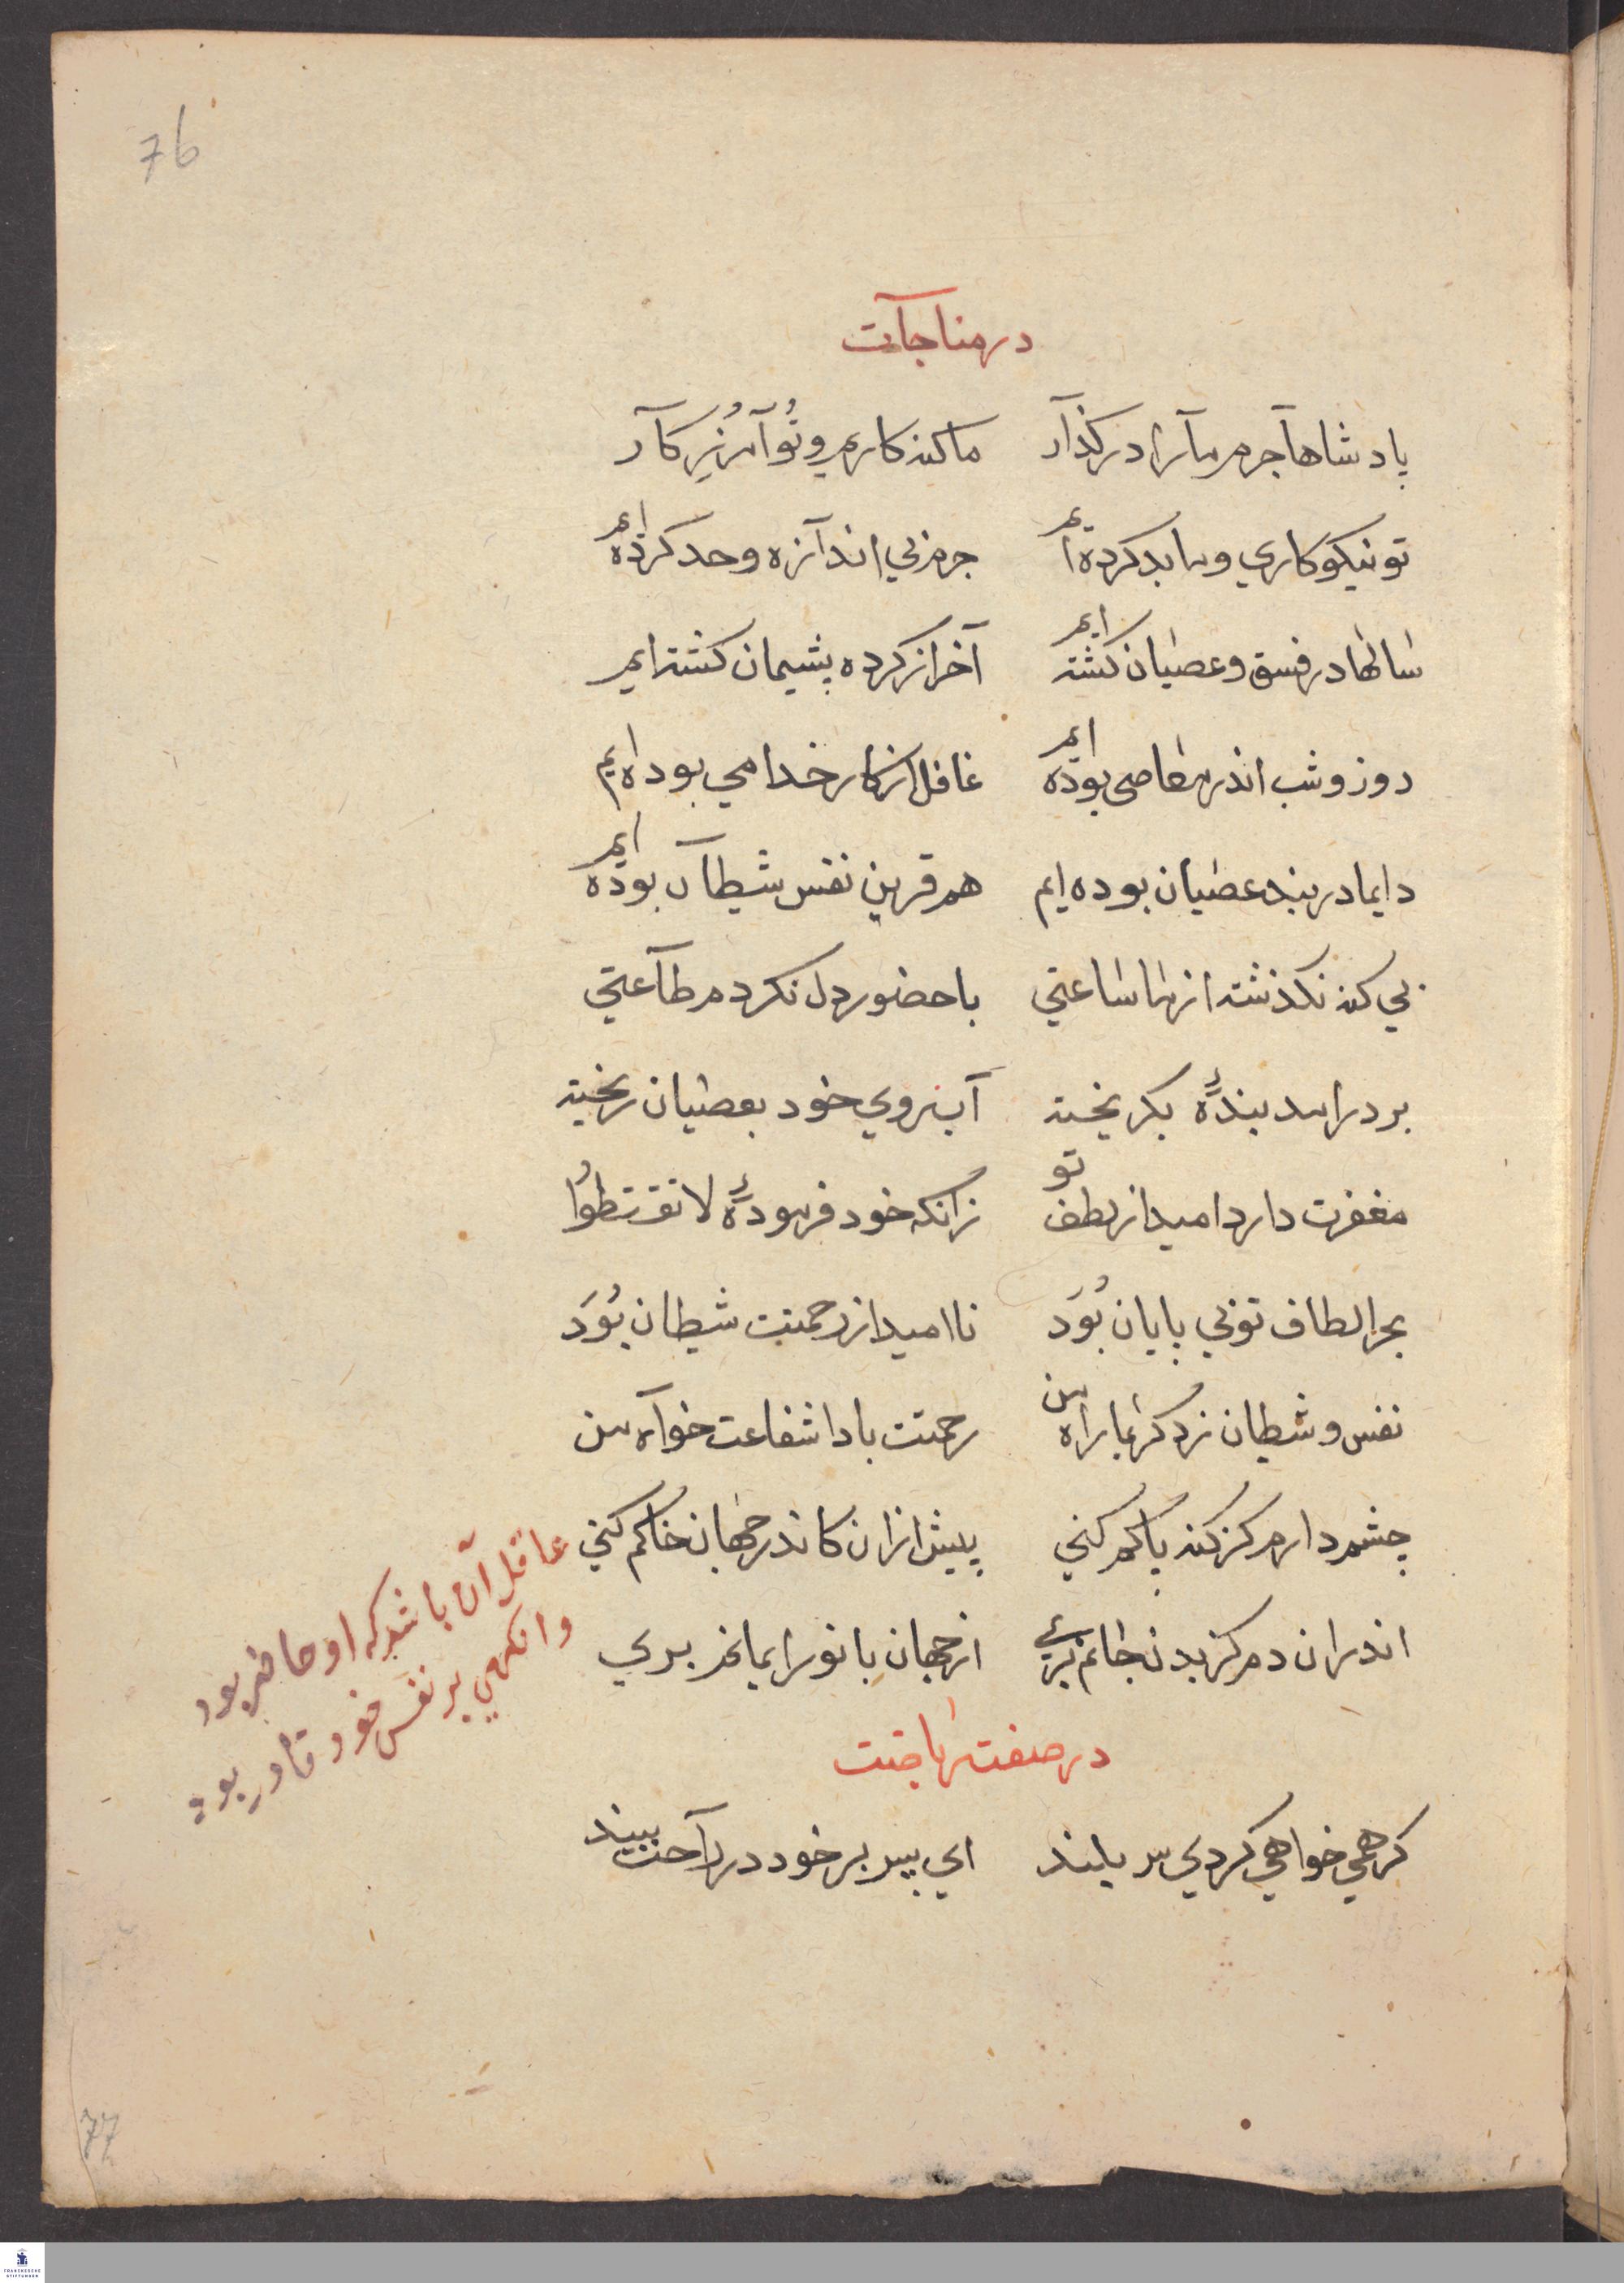 76
در مناجآت
پادشاهآ جرم مآرا در کذآر ما کنه کاریم و تُو آمرُزِکآر
تو نیکوکاری و ما بد کرده ایم جرم بی اندآزه و حد کرده ایم
سالها در فسق و عصیان کشته ایم آخر از کرده پشیمان کشته ایم
روز و شب اندر معاصی بوده ایم غافل از کار خدا می بوده ایم
دایما در بند عصیان بوده ایم هم قرین نفس شیطآن بوده ایم
بی کنه نکذشته از ما ساعتی با حضور دل نکردم طآعتی
بر در امد بندهٔ بکریخته آب روی خود بعصیان ریخته
مغفرت دارد امید از لطف تو زانکه خود فرمودهٔ لا تقنطوُا
بحر الطاف تو بی پایان بُوَد نا امید از رحمتت شیطان بُوَد
نفس و شیطان زد کریما راه من رحمتت بادا شفاعت خوآه من
چشم دارم کز کنه پاکم کنی پیش ازان کاندر جهان خاکم کنی
اندران دم کز بدن جانم بری از جهان با نور ایمانم بری
عاقل آن باشد که او حاضر بود
وانکهی بر نفس خود قادر بود
در صفت ریاضت
کر همی خواهی کردی سر بلند ای پسر بر خود در رآحت ببند
77
FRANCKESCHE
STIFTUNGEN